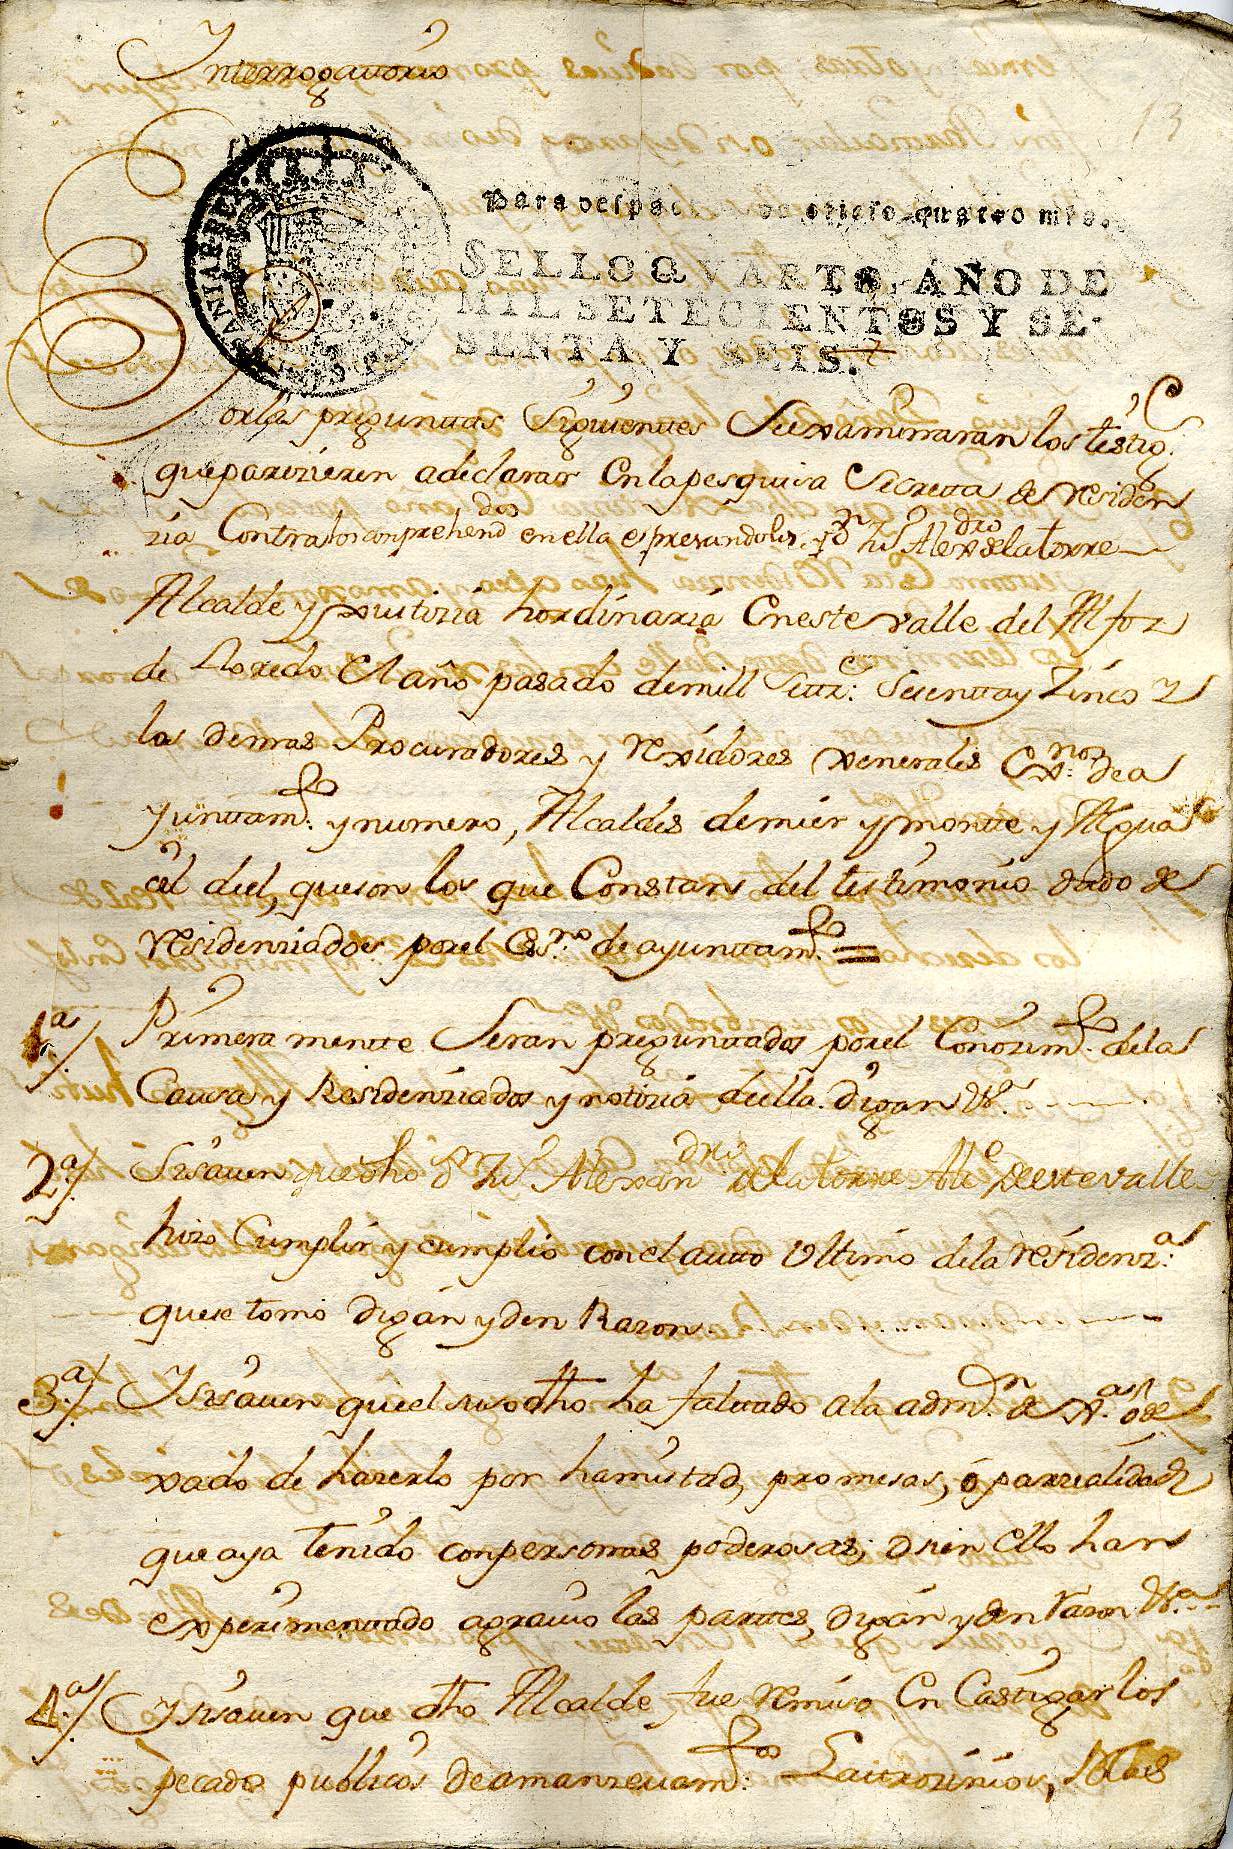 Interrogattorio
13
Para despac de oficio quatro mrs.
SELLO QVARTO, AÑO DE
MIL SETECIENTOS Y SE-
SENTA Y SEIS. 7
Por las preguntas Siguientes Se examinaran los testigs
que parezieren a declarar en la pesquisa Secretta de residen
zia Contra los comprehenddos en ella espresandoles, Dn Jn Alexdro de la torre
Alcalde y Justizia hordinaria en este valle del Alfoz
de Lloredo el año pasado de mill Settz: Sesentta y Zinco y
los demas Procuradores y rexidores xenerales Exnos de a
yunttamto: y numero, Alcaldes de mier y montte y Algua
cil del, que son los que Constan del testimonio dado de
residenziados por el Essno de ayunttamto =
1a/ Primera mentte Seran preguntados por el Conozimto de la
Causa y Residenziados y notizia de ella digan &a
2a/ Si saven que dho Dn Jn Alexandro de la torre Alce de este valle
hizo Cumplir y cumplio con el autto Ultimo de la residenza:
que se tomo digan y den Razon
3a/ Y si saven que el suso dho ha faltado a la admon de Xa o de
xado de hazerlo por hamistad, promesas, o parzialidad
que aya tenido con personas poderosas, o si en ello han
experimentado agravio las partes, digan y den razon &a
4a/ Y si saven que dho Alcalde fue remiso en Castigar los
pecados publicos de amanzevamtos: Lattrozinios,